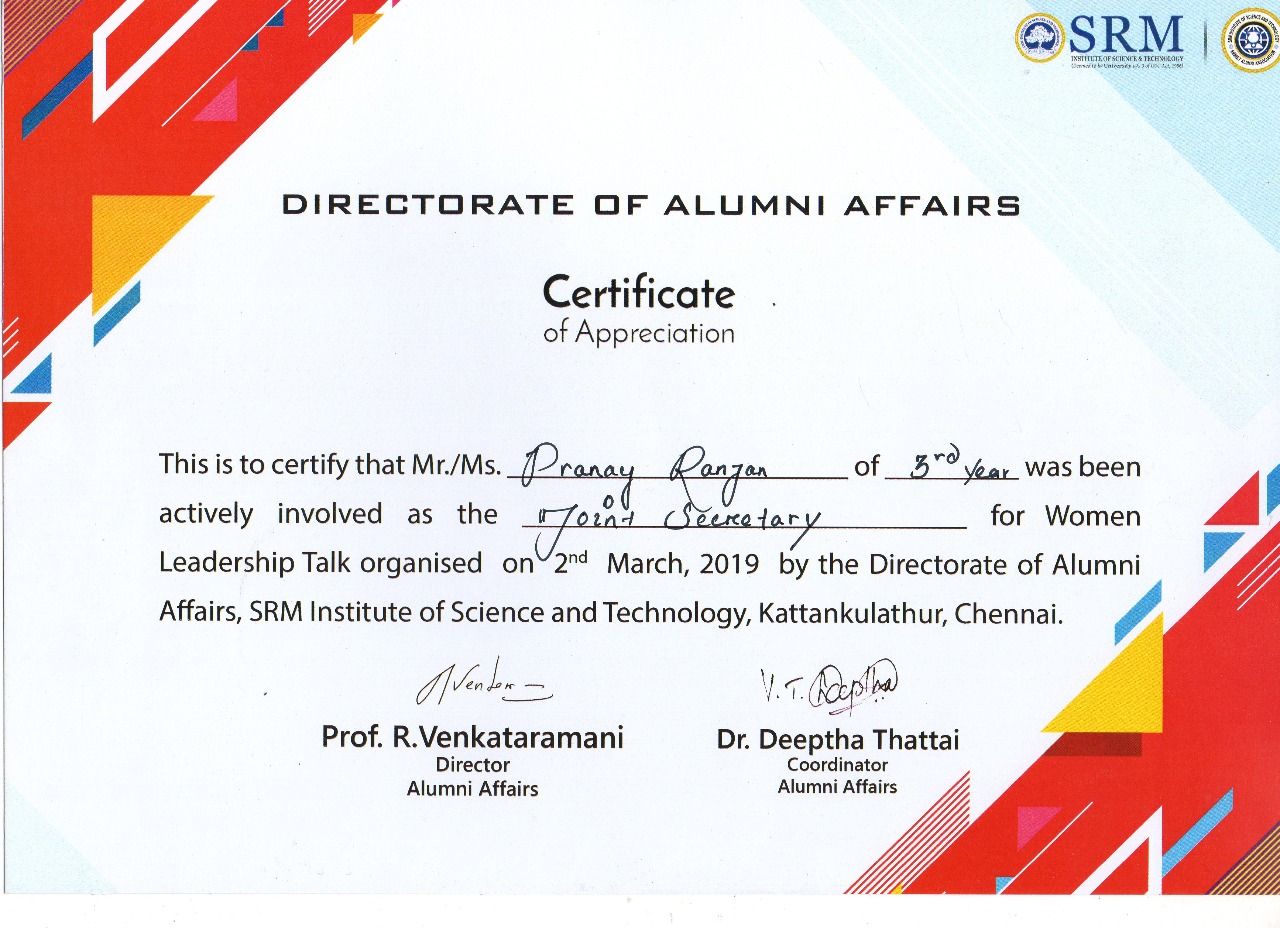 SRM
INSTITUTE OF SCIENCE & TECHNOLOGY
(Deemed to be University u/s 3 of UGC Act, 1956)
DIRECTORATE OF ALUMNI AFFAIRS
Certificate
of Appreciation
This is to certify that Mr./Ms. Pranay Ranjan of 3rd Year was been
actively involved as the Joint Secretary for Women
Leadership Talk organised on 2nd March, 2019 by the Directorate of Alumni
Affairs, SRM Institute of Science and Technology, Kattankulathur, Chennai.
V. T. Deeptha
Prof. R.Venkataramani Dr. Deeptha Thattai
Director Coordinator
Alumni Affairs Alumni Affairs